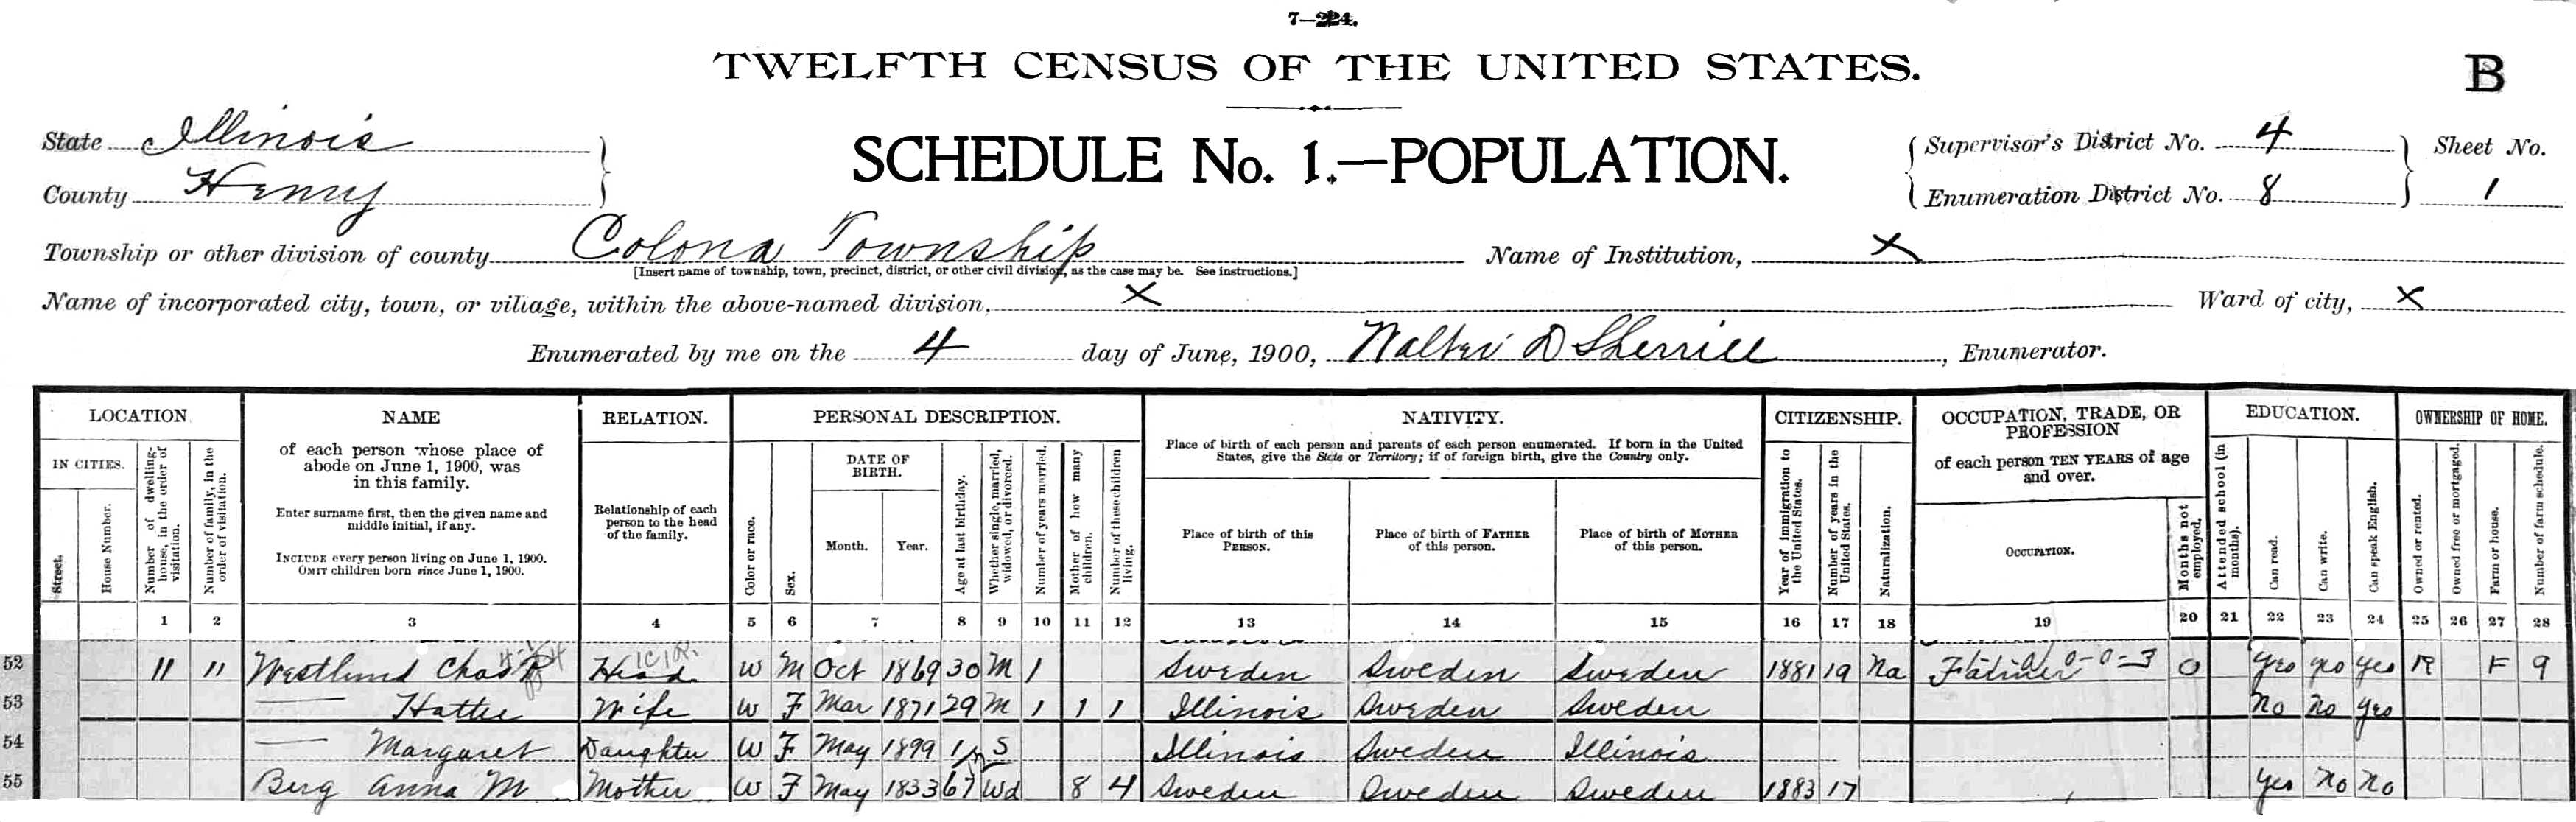 7—224.
TWELFTH CENSUS OF THE UNITED STATES.
B
State Illinois
County Henry
SCHEDULE No. 1.—POPULATION.
Supervisor's District No. 4
Enumeration District No. 8
Sheet No.
1
Township or other division of county Colona Township
[Insert name of township, town, precinct, district, or other civil division, as the case may be. See instructions.]
Name of Institution, X
Name of incorporated city, town, or village, within the above-named division, X
Ward of city, X
Enumerated by me on the 4 day of June, 1900, Walter D Sherrill, Enumerator.
LOCATION.
IN CITIES.
Street.
House Number.
Number of dwelling-house, in the order of visitation.
Number of family, in the order of visitation.
NAME
of each person whose place of
abode on June 1, 1900, was
in this family.
Enter surname first, then the given name and
middle initial, if any.
INCLUDE every person living on June 1, 1900.
OMIT children born since June 1, 1900.
RELATION.
Relationship of each
person to the head
of the family.
PERSONAL DESCRIPTION.
Color or race.
Sex.
DATE OF
BIRTH.
Month.
Year.
Age at last birthday.
Whether single, married, widowed, or divorced.
Number of years married.
Mother of how many children.
Number of these children living.
NATIVITY.
Place of birth of each person and parents of each person enumerated. If born in the United
States, give the State or Territory; if of foreign birth, give the Country only.
Place of birth of this
PERSON.
Place of birth of FATHER
of this person.
Place of birth of MOTHER
of this person.
CITIZENSHIP.
Year of immigration to the United States.
Number of years in the United States.
Naturalization.
OCCUPATION, TRADE, OR
PROFESSION
of each person TEN YEARS of age
and over.
OCCUPATION.
Months not employed.
EDUCATION.
Attended school (in months).
Can read.
Can write.
Can speak English.
OWNERSHIP OF HOME.
Owned or rented.
Owned free or mortgaged.
Farm or house.
Number of farm schedule.
1 2 3 4 5 6 7 8 9 10 11 12 13 14 15 16 17 18 19 20 21 22 23 24 25 26 27 28
52 11 11 Westlund Chas Head W M Oct 1869 30 M 1 Sweden Sweden Sweden 1881 19 Na Farmer 0-0=3 0 Yes yes Yes R F 9
53 — Hattie Wife W F Mar 1871 29 M 1 1 1 Illinois Sweden Sweden No No Yes
54 — Margaret Daughter W F May 1899 1 S Illinois Sweden Illinois
55 Berg Anna M Mother W F May 1833 67 Wd 8 4 Sweden Sweden Sweden 1883 17 Yes No No